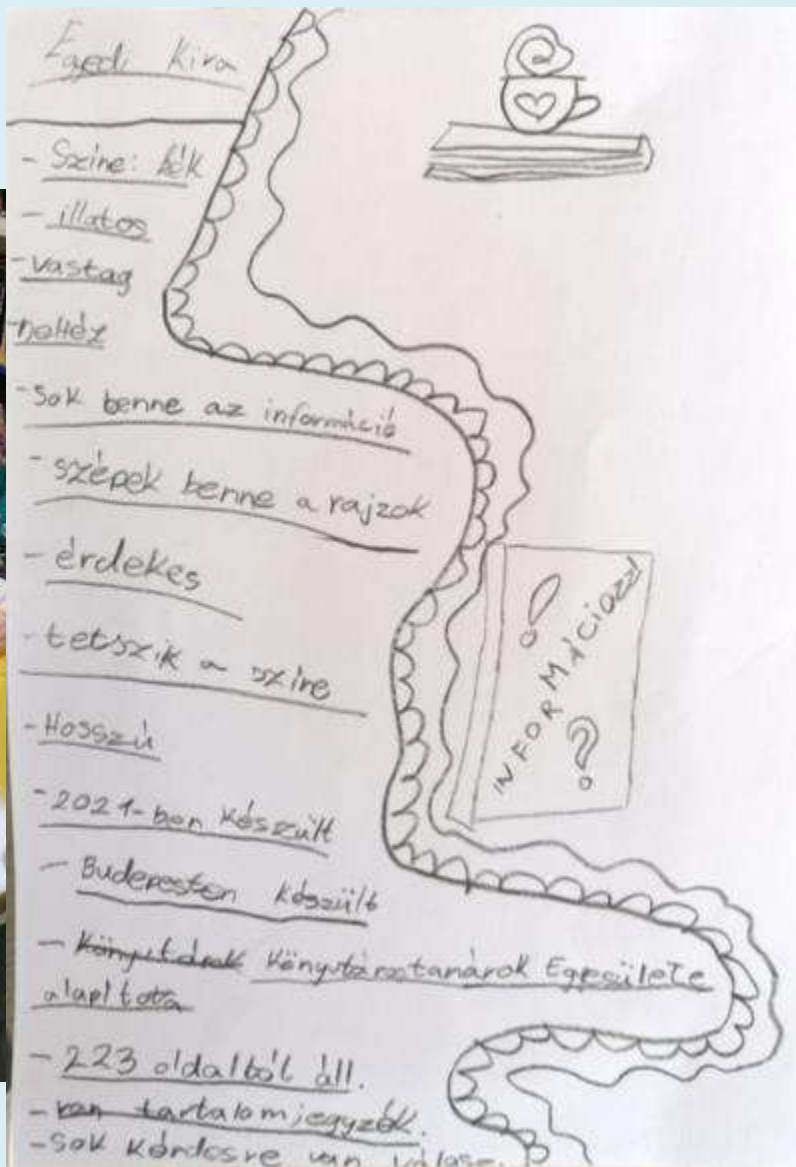 Egedi Kira
- Színe: kék
- illatos
- vastag
- nehéz
- sok benne az információ
- szépek benne a rajzok
- érdekes
- tetszik a színe
- Hosszú
- 2021-ben készült
- Budapesten készült
- Könyvtárak Könyvtárostanárok Egyesülete
alapította
- 223 oldalból áll.
- van tartalomjegyzék.
- sok kérdésre van válasz.
INFORMÁCIÓZZ!